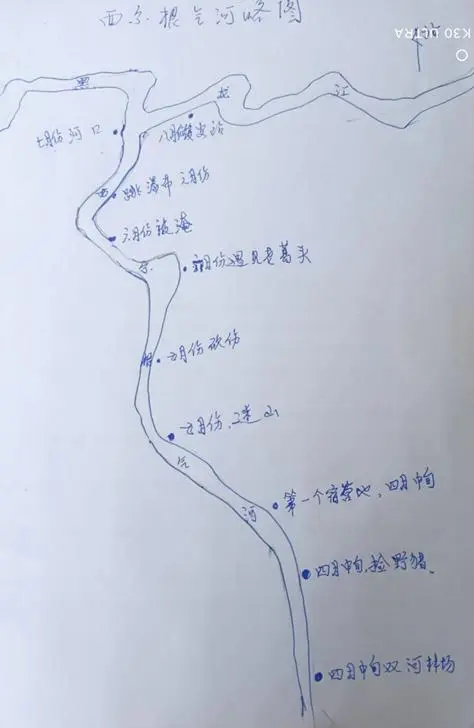 西尔根气河略图
K30 ULTRA
北
黑龙江
七月份河口
八月 安站
西
跳瀑布 六月份
六月份被淹
尔
月份遇见老葛头
根
五月份砍伤
五月份.迷山
气
第一个宿营地，四月中旬
河
四月中旬.捡野猪.
四月中旬双河林场